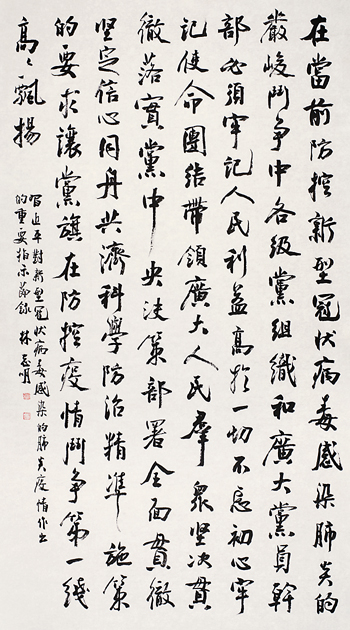 在當前防控新型冠狀病毒感染肺炎的
嚴峻鬥争中各级黨組織和廣大黨員幹
部必須牢記人民利益高於一切不忘初心牢
记使命團结帶領廣大人民羣衆坚决貫
徹落實黨中央决策部署全面貫徹
坚定信心同舟共濟科學防治精準施策
的要求讓黨旗在防控疫情鬥争第一线
高高飄揚
習近平對新型冠狀病毒感染的肺炎疫情作出
的重要指示節録 林